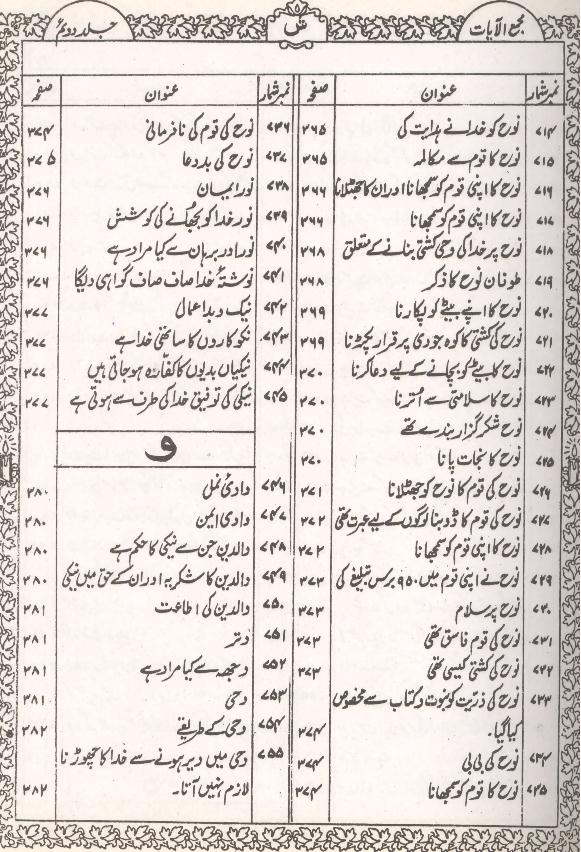 مجمع الآیات
ش
جلد دوئم
نمبر شمار عنوان صفحہ
۷۱۴ نوح کو خدا نے ہدایت کی ۳۶۵
۷۱۵ نوح کا قوم سے مکالمہ ۳۶۵
۷۱۶ نوح کا اپنی قوم کو سمجھانا اور ان کا جھٹلانا ۳۶۶
۷۱۷ نوح کا اپنی قوم کو سمجھانا ۳۶۶
۷۱۸ نوح پر خدا کی وحی کشتی بنانے کے متعلق ۳۶۸
۷۱۹ طوفان نوح کا ذکر ۳۶۸
۷۲۰ نوح کا اپنے بیٹے کو پکارنا ۳۶۹
۷۲۱ نوح کی کشتی کا کوہ جودی پر قرار پکڑنا ۳۶۹
۷۲۲ نوح کا بیٹے کو بچانے کے لیے دعا کرنا ۳۷۰
۷۲۳ نوح کا سلامتی سے اُترنا ۳۷۰
۷۲۴ نوح شکر گزار بندے تھے ۳۷۰
۷۲۵ نوح کا نجات پانا ۳۷۰
۷۲۶ نوح کی قوم کا نوح کو جھٹلانا ۳۷۱
۷۲۷ نوح کی قوم کا ڈوبنا لوگوں کے لیے عبرت تھی ۳۷۲
۷۲۸ نوح کا اپنی قوم کو سمجھانا ۳۷۲
۷۲۹ نوح نے اپنی قوم میں ۹۵۰ برس تبلیغ کی ۳۷۳
۷۳۰ نوح پر سلام ۳۷۳
۷۳۱ نوح کی قوم فاسق تھی ۳۷۳
۷۳۲ نوح کی کشتی کیسی تھی ۳۷۳
۷۳۳ نوح کی ذریت کو نبوت و کتاب سے مخصوص
کیا گیا۔ ۳۷۴
۷۳۴ نوح کی بی بی ۳۷۴
۷۳۵ نوح کا قوم کو سمجھانا ۳۷۴
نمبر شمار عنوان صفحہ
۷۳۶ نوح کی قوم کی نافرمانی ۳۷۴
۷۳۷ نوح کی بددعا ۳۷۵
۷۳۸ نور ایمان ۳۷۶
۷۳۹ نور خدا کو بجھانے کی کوشش ۳۷۶
۷۴۰ نور اور برہان سے کیا مراد ہے ۳۷۶
۷۴۱ نوشتۂ خدا صاف صاف گواہی دیگا ۳۷۶
۷۴۲ نیک و بد اعمال ۳۷۷
۷۴۳ نکوکاروں کا ساتھی خدا ہے ۳۷۷
۷۴۴ نیکیاں بدیوں کا کفارہ ہو جاتی ہیں ۳۷۷
۷۴۵ نیکی کی توفیق خدا کی طرف سے ہوتی ہے ۳۷۷
و
۷۴۶ وادیٔ نمل ۳۸۰
۷۴۷ وادی ایمن ۳۸۰
۷۴۸ والدین جن سے نیکی کا حکم ہے ۳۸۰
۷۴۹ والدین کا شکریہ اور ان کے حق میں نیکی ۳۸۰
۷۵۰ والدین کی اطاعت ۳۸۱
۷۵۱ وتر ۳۸۱
۷۵۲ وجھہ سے کیا مراد ہے ۳۸۱
۷۵۳ وحی ۳۸۱
۷۵۴ وحی کے طریقے ۳۸۲
۷۵۵ وحی میں دیر ہونے سے خدا کا چھوڑ نا
لازم نہیں آتا۔ ۳۸۲